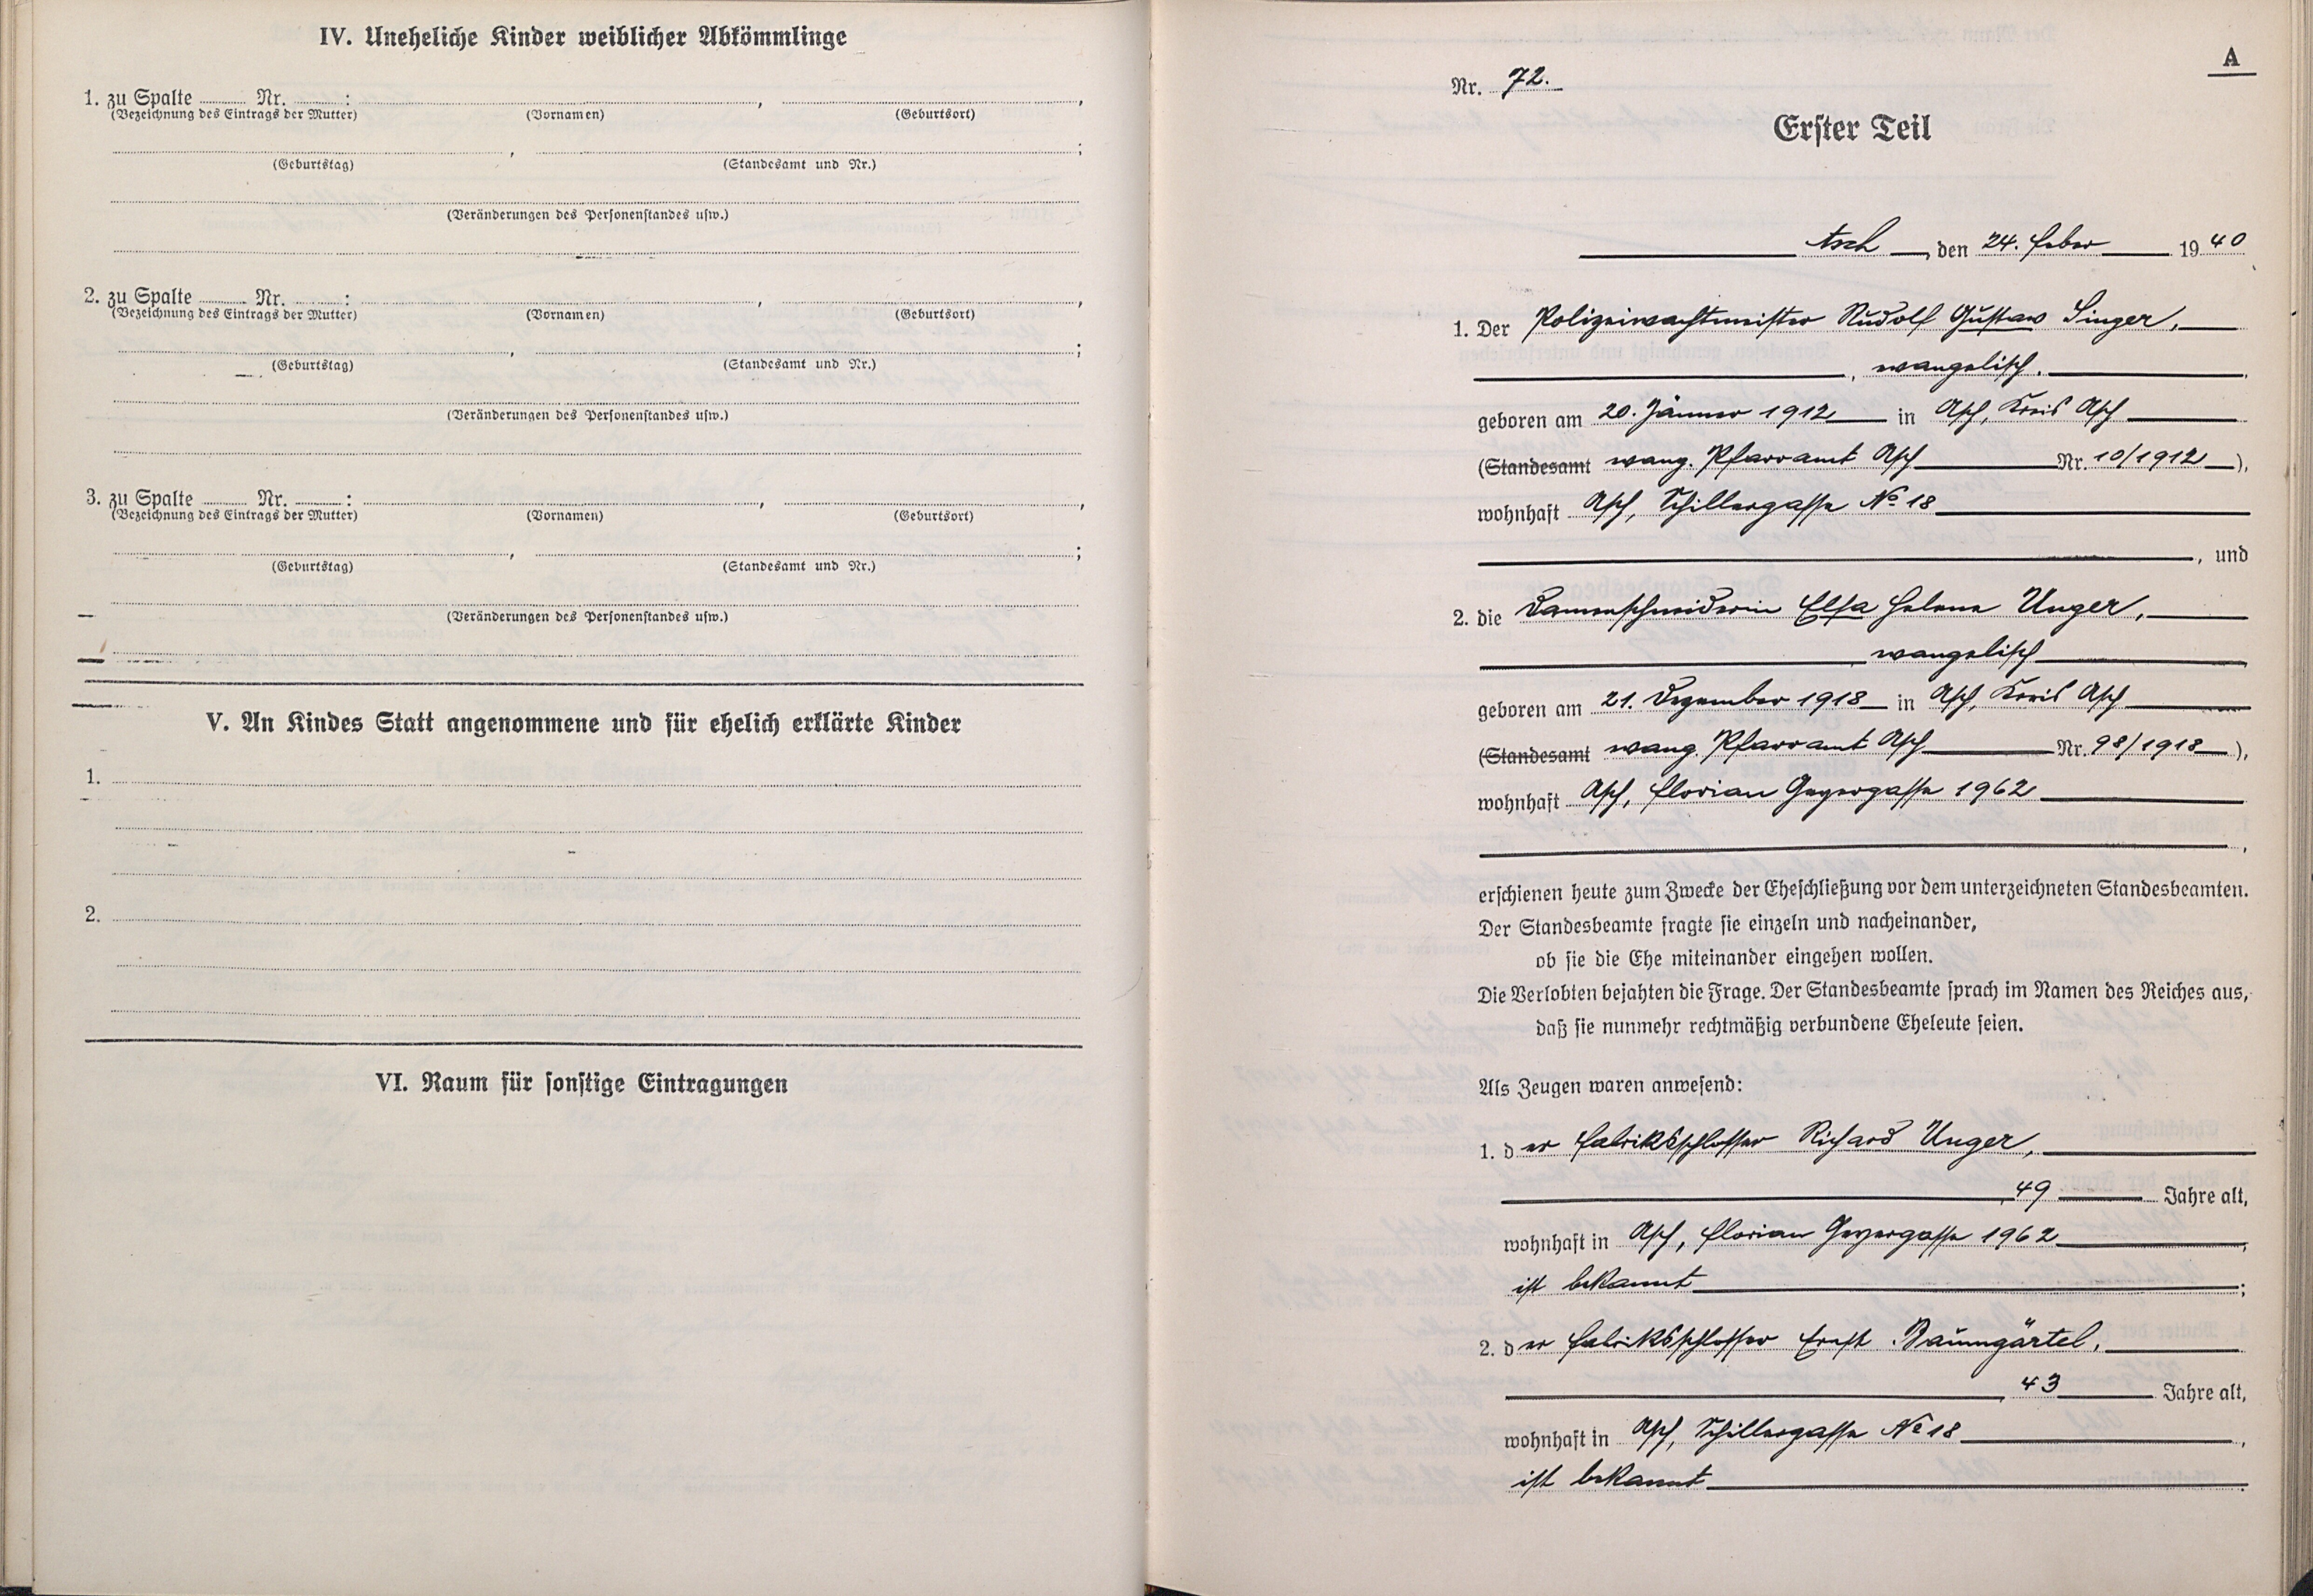 IV. Uneheliche Kinder weiblicher Abkömmlinge
1. zu Spalte ........ Nr. ........:
(Bezeichnung des Eintrags der Mutter) (Vornamen) (Geburtsort)
(Geburtstag) (Standesamt und Nr.)
(Veränderungen des Personenstandes usw.)
2. zu Spalte ........ Nr. ........:
(Bezeichnung des Eintrags der Mutter) (Vornamen) (Geburtsort)
(Geburtstag) (Standesamt und Nr.)
(Veränderungen des Personenstandes usw.)
3. zu Spalte ........ Nr. ........:
(Bezeichnung des Eintrags der Mutter) (Vornamen) (Geburtsort)
(Geburtstag) (Standesamt und Nr.)
(Veränderungen des Personenstandes usw.)
V. An Kindes Statt angenommene und für ehelich erklärte Kinder
1.
2.
VI. Raum für sonstige Eintragungen
A
Nr. 72.
Erster Teil
Asch, den 24. Feber 1940
1. Der Polizeiwachtmeister Rudolf Gustav Singer,
, evangelisch,
geboren am 20. Jänner 1912 in Asch, Kreis Asch
(Standesamt evang. Pfarramt Asch Nr. 10/1912),
wohnhaft Asch, Schillergasse No 18
, und
2. die Damenschneiderin Elsa Helene Unger,
evangelisch
geboren am 21. Dezember 1918 in Asch, Kreis Asch
(Standesamt evang. Pfarramt Asch Nr. 98/1918),
wohnhaft Asch, Florian Geyergasse 1962
erschienen heute zum Zwecke der Eheschließung vor dem unterzeichneten Standesbeamten.
Der Standesbeamte fragte sie einzeln und nacheinander,
ob sie die Ehe miteinander eingehen wollen.
Die Verlobten bejahten die Frage. Der Standesbeamte sprach im Namen des Reiches aus,
daß sie nunmehr rechtmäßig verbundene Eheleute seien.
Als Zeugen waren anwesend:
1. der Fabriksschlosser Richard Unger,
49 Jahre alt,
wohnhaft in Asch, Florian Geyergasse 1962
ist bekannt;
2. der Fabriksschlosser Ernst Baumgärtel,
43 Jahre alt,
wohnhaft in Asch, Schillergasse No 18,
ist bekannt.